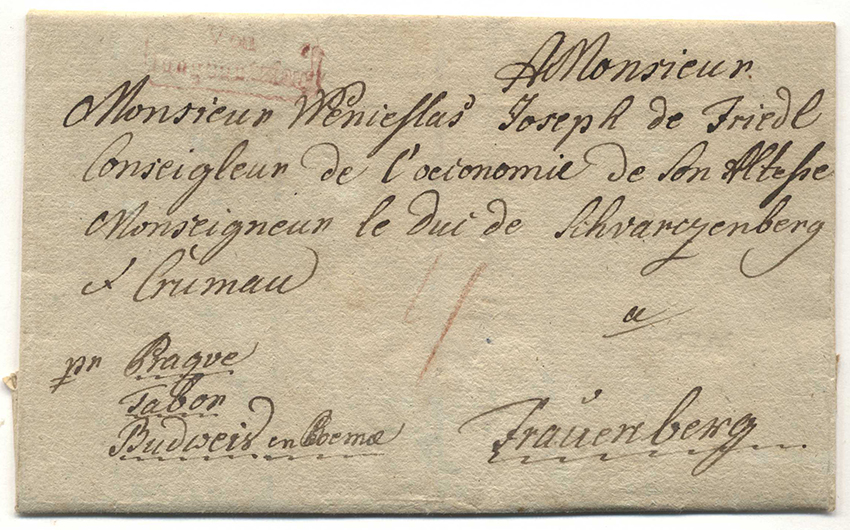 Von
A Monsieur
Monsieur Wenieslas Joseph de Friedl
Conseigleur de l'oeconomie de Son Altesse
Monseigneur le Duc de Schvarczenberg
Crumau
a
pr Prague
Tabor
Budweis en Boemæ
Frauenberg